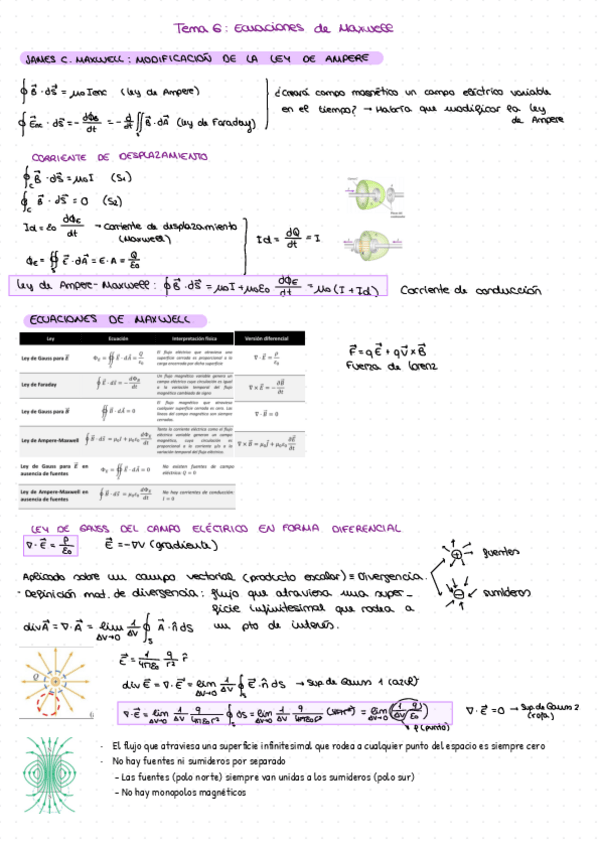 Tema 6: Ecuaciones de Maxwell
JAMES C. MAXWELL: MODIFICACIÓN DE LA LEY DE AMPERE
∮ B⃗ · ds⃗ = μ₀ Ienc (Ley de Ampere)
∮ E⃗nc · ds⃗ = - dΦB/dt = - d/dt ∬ B⃗ · dA⃗ (Ley de Faraday)
¿Creará campo magnético un campo eléctrico variable
en el tiempo? → Habría que modificar la ley
de Ampere
CORRIENTE DE DESPLAZAMIENTO
∮c B⃗ · ds⃗ = μ₀ I (S₁)
∮c B⃗ · ds⃗ = 0 (S₂)
Id = ε₀ dΦE/dt → Corriente de desplazamiento
(Maxwell)
Id = dQ/dt = I
ΦE = ∯s E⃗ · dA⃗ = E · A = Q/ε₀
Ley de Ampere-Maxwell: ∮ B⃗ · ds⃗ = μ₀I + μ₀ε₀ dΦE/dt = μ₀ (I + Id)
Corriente de conducción
ECUACIONES DE MAXWELL
Ley Ecuación Interpretación física Versión diferencial
Ley de Gauss para E⃗ ΦE = ∯ E⃗ · dA⃗ = Q/ε₀ El flujo eléctrico que atraviesa una superficie cerrada es proporcional a la carga encerrada por dicha superficie ∇ · E⃗ = ρ/ε₀
Ley de Faraday ∮ E⃗ · dℓ⃗ = - dΦB/dt Un flujo magnético variable genera un campo eléctrico cuya circulación es igual a la variación temporal del flujo magnético cambiada de signo ∇ × E⃗ = - ∂B⃗/∂t
Ley de Gauss para B⃗ ∯ B⃗ · dA⃗ = 0 El flujo magnético que atraviesa cualquier superficie cerrada es cero. Las líneas del campo magnético son siempre cerradas. ∇ · B⃗ = 0
Ley de Ampere-Maxwell ∮ B⃗ · dℓ⃗ = μ₀I + μ₀ε₀ dΦE/dt Tanto la corriente eléctrica como el flujo eléctrico variable generan un campo magnético, cuya circulación es proporcional a la corriente y/o a la variación temporal del flujo eléctrico. ∇ × B⃗ = μ₀J⃗ + μ₀ε₀ ∂E⃗/∂t
Ley de Gauss para E⃗ en ausencia de fuentes ΦE = ∯ E⃗ · dA⃗ = 0 No existen fuentes de campo eléctrico: Q = 0
Ley de Ampere-Maxwell en ausencia de fuentes ∮ B⃗ · dℓ⃗ = μ₀ε₀ dΦE/dt No hay corrientes de conducción: I = 0
F⃗ = qE⃗ + qv⃗ × B⃗
Fuerza de Lorenz
LEY DE GAUSS DEL CAMPO ELÉCTRICO EN FORMA DIFERENCIAL
∇ · E⃗ = ρ/ε₀ E⃗ = -∇V (gradiente)
Aplicado sobre un campo vectorial (producto escalar) ≡ Divergencia.
fuentes
sumideros
· Definición mat. de divergencia: flujo que atraviesa una super-
ficie infinitesimal que rodea a
un pto de interés.
div A⃗ = ∇ · A⃗ = lim ΔV→0 1/ΔV ∮s A⃗ · n̂ ds
E⃗ = 1/4πε₀ q/r² r̂
div E⃗ = ∇ · E⃗ = lim ΔV→0 1/ΔV ∮s E⃗ · n̂ ds → Sup de Gauss 1 (azul)
∇ · E⃗ = lim ΔV→0 1/ΔV q/4πε₀r² ∮ ds = lim ΔV→0 1/ΔV q/4πε₀r² (4πr²) = lim ΔV→0 (1/ΔV q/ε₀)
ρ (punto)
∇ · E⃗ = 0 → Sup de Gauss 2
(roja)
Q
- El flujo que atraviesa una superficie infinitesimal que rodea a cualquier punto del espacio es siempre cero
- No hay fuentes ni sumideros por separado
– Las fuentes (polo norte) siempre van unidas a los sumideros (polo sur)
– No hay monopolos magnéticos